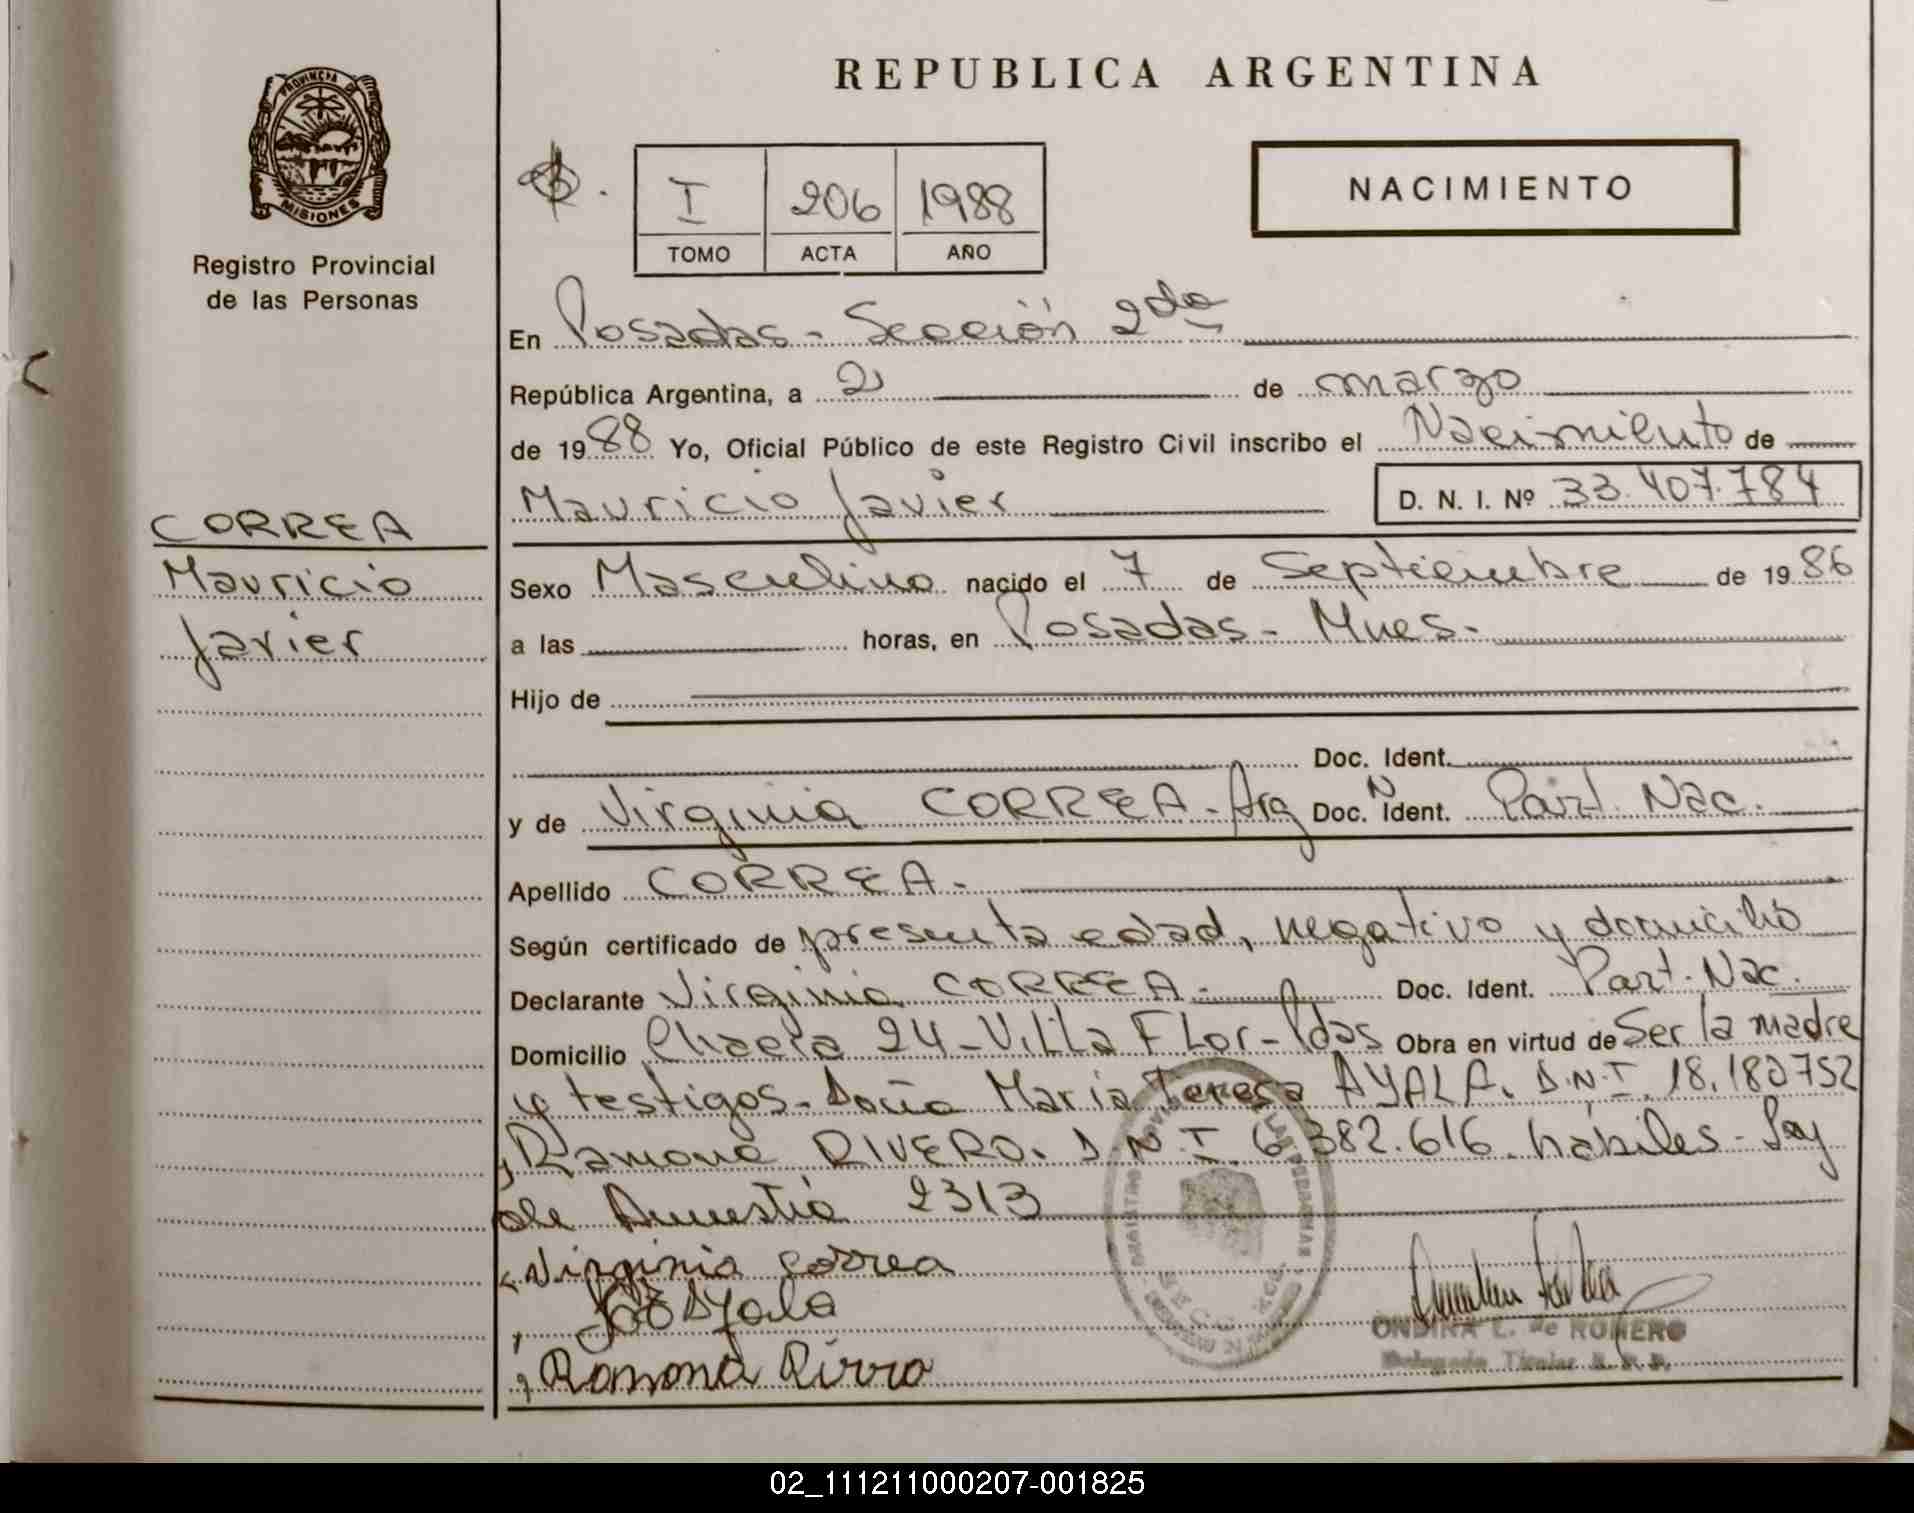 PROVINCIA DE
MISIONES
Registro Provincial
de las Personas
CORREA
Mauricio
Javier
REPUBLICA ARGENTINA
I 206 1988
TOMO ACTA AÑO
NACIMIENTO
En Posadas - Sección 2da
República Argentina, a 2 de marzo
de 1988 Yo, Oficial Público de este Registro Civil inscribo el Nacimiento de
Mauricio Javier D. N. I. Nº 33.407.784
Sexo Masculino nacido el 7 de Septiembre de 1986
a las horas, en Posadas - Mnes.
Hijo de
Doc. Ident.
y de Virginia CORREA - Arg N Doc. Ident. Part. Nac.
Apellido CORREA.
Según certificado de presunta edad, negativo y domicilio
Declarante Virginia CORREA. Doc. Ident. Part. Nac.
Domicilio Chacra 24 - Villa Flor - Pdas Obra en virtud de Ser la madre
y testigos. Doña María Teresa AYALA. D.N.I. 18.182752
y Ramona RIVERO. D.N.I. 6.382.616. habiles -
de 2313
Virginia correa
Ayala
Ramona Rivro
ONDINA L. de ROMERO
Delegada Titular R. P. P.
02_111211000207-001825